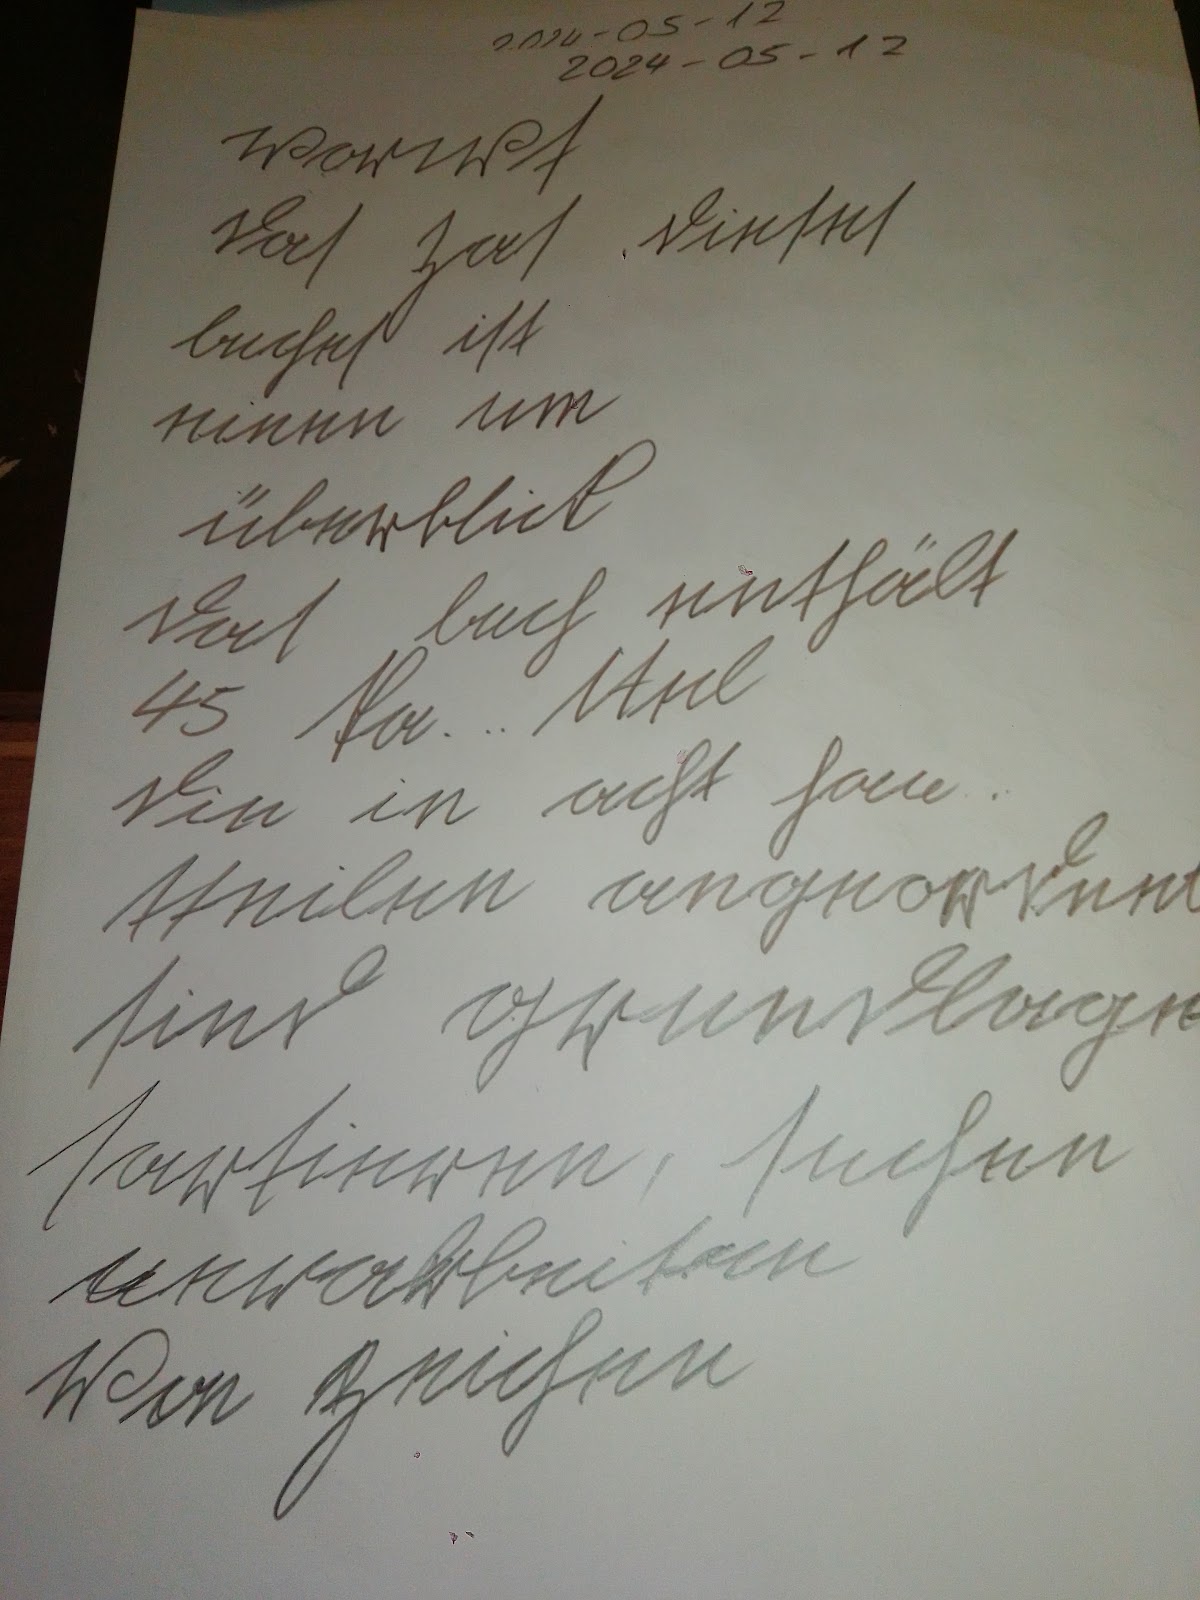 2024-05-12
2024-05-12
Vorwort
das Zal dieses
buches ist
einen um
überblick
das buch enthält
45 Pa...
die in acht hau..
theilen angeordnet
sind grundlage
sortieren, suchen
verarbeiten
Von Zeichen